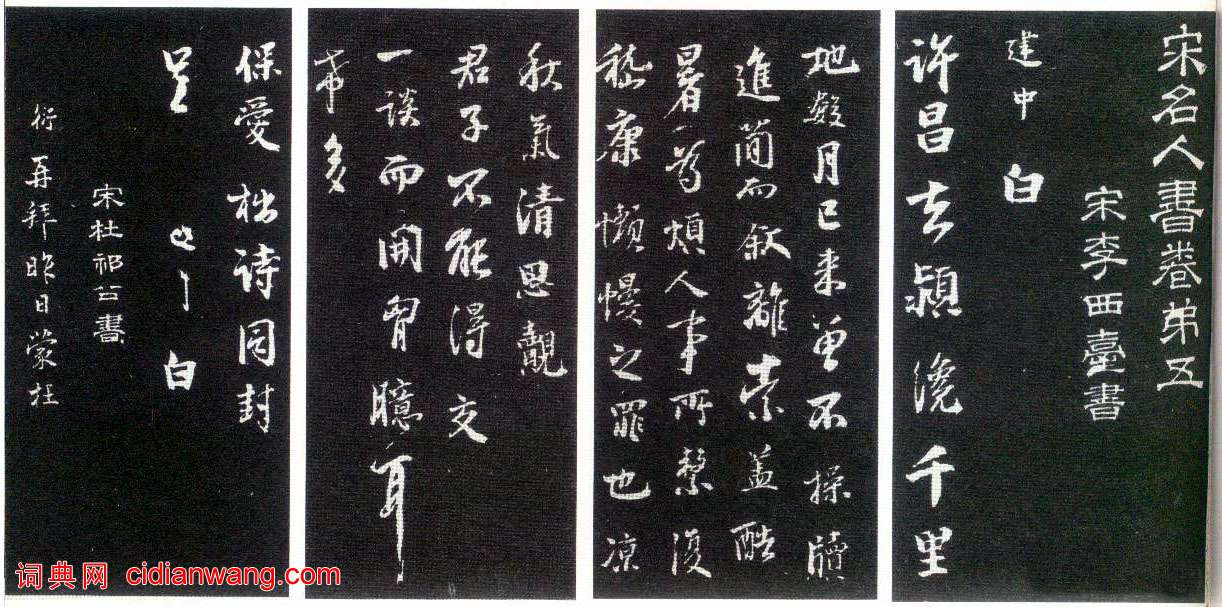 宋名人書卷弟五
宋李西臺書
建中白
許昌去潁纔千里
地數月已来曽不操牘
進簡而叙離索蓋酷
暑煩人事所繫復
嵇康懶慢之罪也凉
秋氣清思覯
君子不能得交
一談而開胷臆耳
希多
保愛拙詩同封
呈白
宋杜祁公書
衍再拜昨日蒙枉
词典网 cidianwang.com